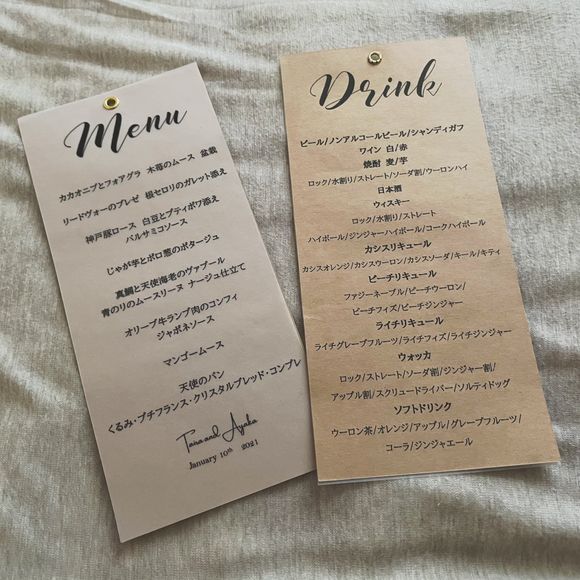 Menu
カカオニブとフォアグラ 木苺のムース 盆栽
リードヴォーのブレゼ 根セロリのガレット添え
神戸豚ロース 白豆とプティポワ添え
バルサミコソース
じゃが芋とポロ葱のポタージュ
真鯛と天使海老のヴァプール
青のりのムースリーヌ ナージュ仕立て
オリーブ牛ランプ肉のコンフィ
ジャポネソース
マンゴームース
天使のパン
くるみ・プチフランス・クリスタルブレッド・コンプレ
Taisa and Ayaka
January 10th 2021
Drink
ビール/ノンアルコールビール/シャンディガフ
ワイン 白/赤
焼酎 麦/芋
ロック/水割り/ストレート/ソーダ割/ウーロンハイ
日本酒
ウィスキー
ロック/水割り/ストレート
ハイボール/ジンジャーハイボール/コークハイボール
カシスリキュール
カシスオレンジ/カシスウーロン/カシスソーダ/キール/キティ
ピーチリキュール
ファジーネーブル/ピーチウーロン/
ピーチフィズ/ピーチジンジャー
ライチリキュール
ライチグレープフルーツ/ライチフィズ/ライチジンジャー
ウォッカ
ロック/ストレート/ソーダ割/ジンジャー割/
アップル割/スクリュードライバー/ソルティドッグ
ソフトドリンク
ウーロン茶/オレンジ/アップル/グレープフルーツ/
コーラ/ジンジャエール